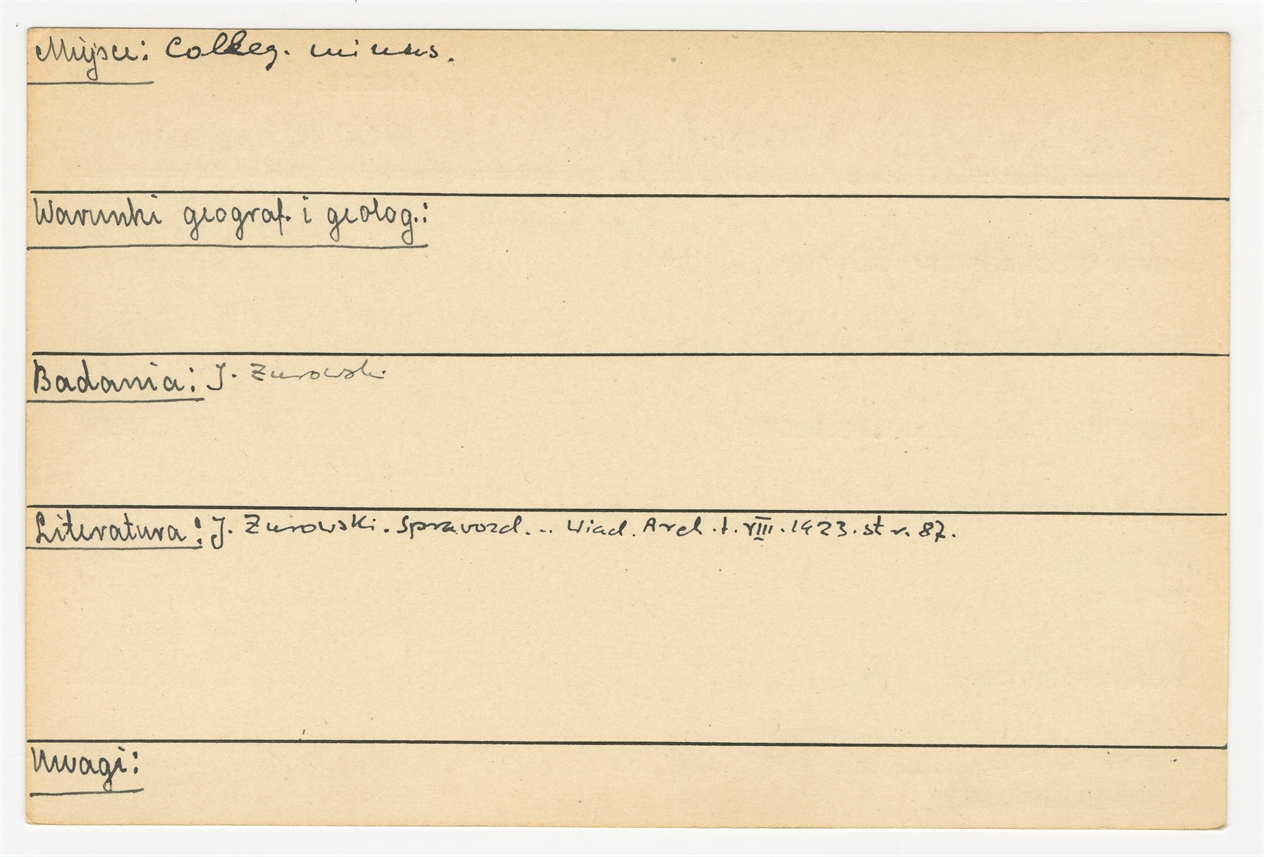 Miejsce: Colleg. minus.
Warunki geograf. i geolog.:
Badania: J. Żurowski
Literatura: J. Żurowski. Sprawozd... Wiad. Arch. t. VIII. 1923. str. 87.
Uwagi: